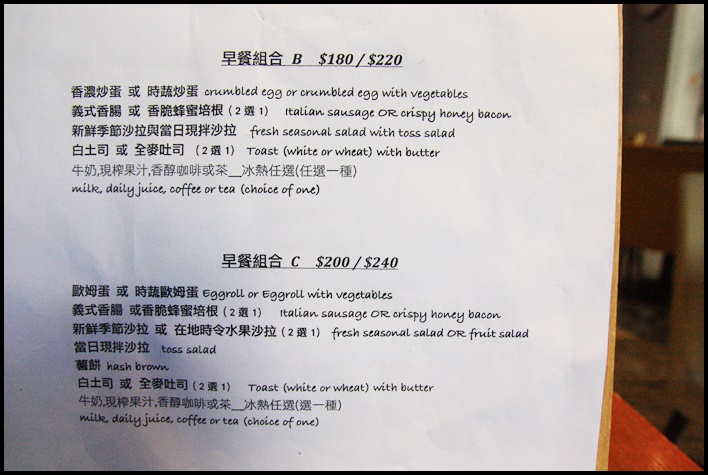 早餐組合 B $180 / $220
香濃炒蛋 或 時蔬炒蛋 crumbled egg or crumbled egg with vegetables
義式香腸 或 香脆蜂蜜培根 (2選1) Italian sausage OR crispy honey bacon
新鮮季節沙拉與當日現拌沙拉 fresh seasonal salad with toss salad
白土司 或 全麥吐司 (2選1) Toast (white or wheat) with butter
牛奶,現榨果汁,香醇咖啡或茶__冰熱任選(任選一種)
milk, daily juice, coffee or tea (choice of one)
早餐組合 C $200 / $240
歐姆蛋 或 時蔬歐姆蛋 Eggroll or Eggroll with vegetables
義式香腸 或香脆蜂蜜培根 (2選1) Italian sausage OR crispy honey bacon
新鮮季節沙拉 或 在地時令水果沙拉 (2選1) fresh seasonal salad OR fruit salad
當日現拌沙拉 toss salad
薯餅 hash brown
白土司 或 全麥吐司 (2選1) Toast (white or wheat) with butter
牛奶,現榨果汁,香醇咖啡或茶__冰熱任選(選一種)
milk, daily juice, coffee or tea (choice of one)